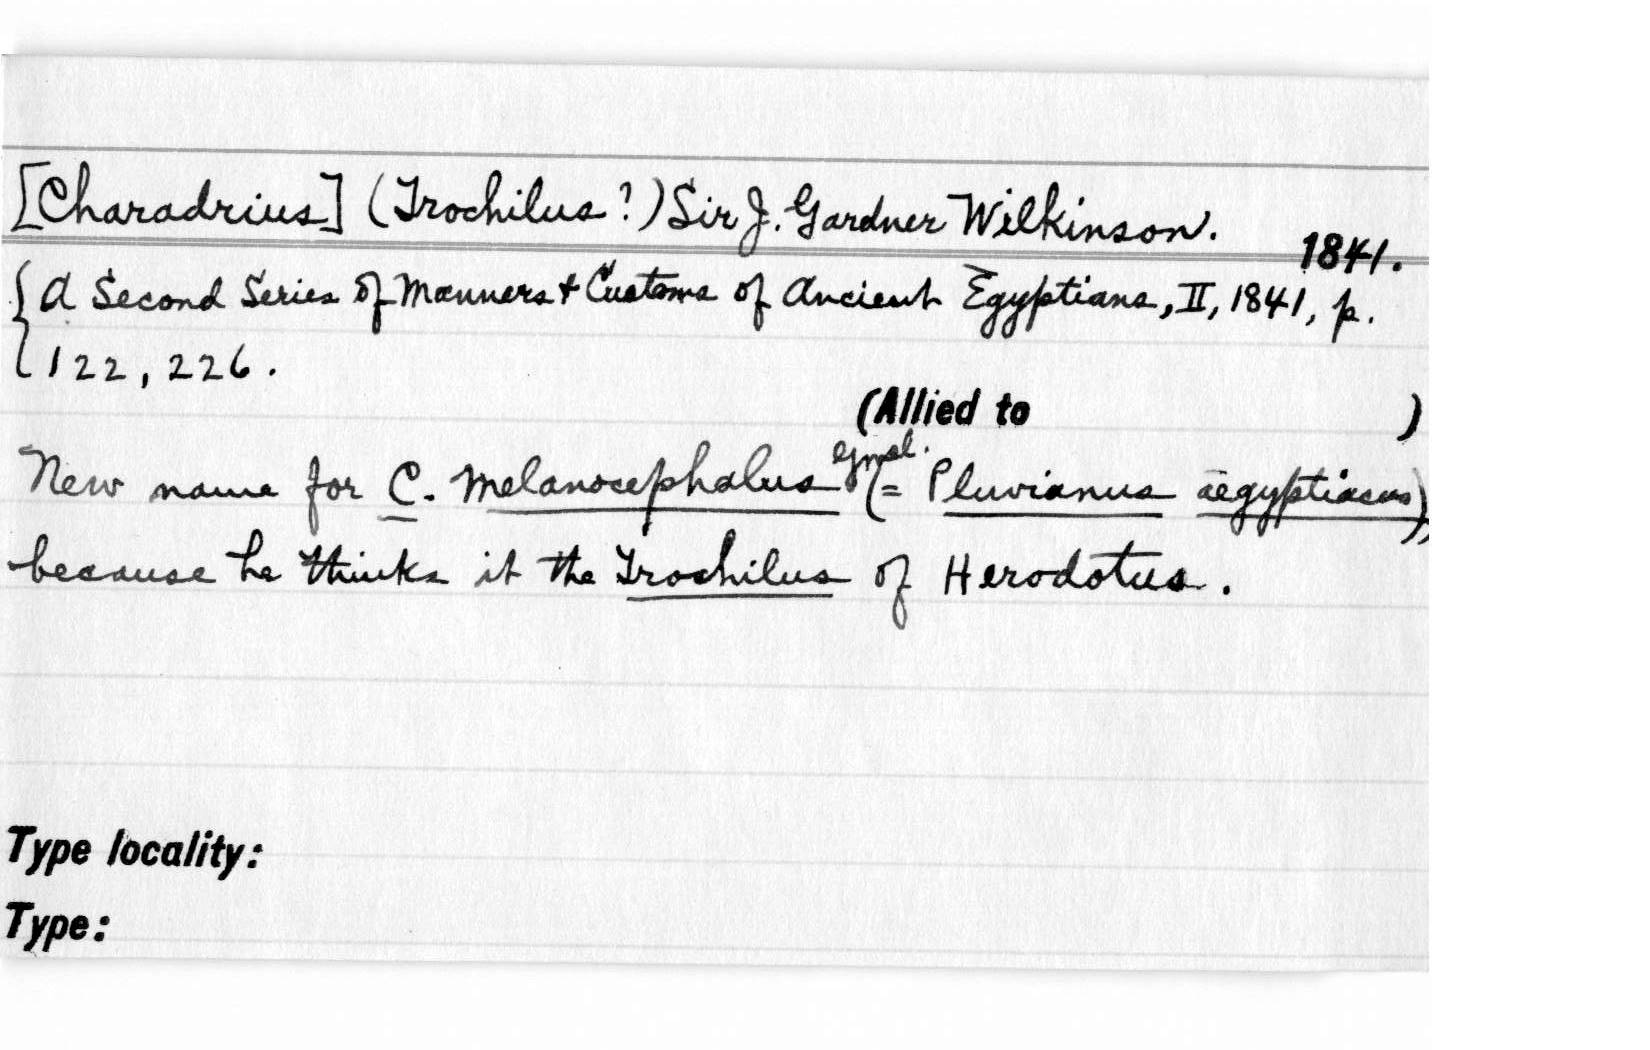 [Charadrius] (Trochilus?) Sir J. Gardner Wilkinson. 1841.
A Second Series of Manners & Customs of Ancient Egyptians, II, 1841, p.
122, 226.
(Allied to )
New name for C. melanocephalus Gmel. (= Pluvianus aegyptiacus),
because he thinks it the Trochilus of Herodotus.
Type locality:
Type: